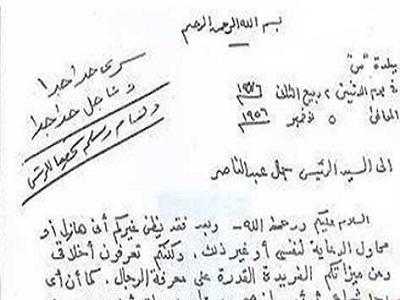 بسم الله الرحمن الرحيم
سرى جدا جدا
وعاجل جدا جدا
ببلدة "س"
في يوم الاثنين ٢ ربيع الثاني
الموافق ٥ نوفمبر ١٩٥٦
إلى السيد الرئيس جمال عبدالناصر
السلام عليكم ورحمة الله - وبعد فقد يظن غيركم أنى هازل أو
محاول الدعاية لنفسى أو غير ذلك، ولكنكم تعرفون أخلاقى
ومن ميزاتكم الفريدة القدرة على معرفة الرجال. كما أن أى